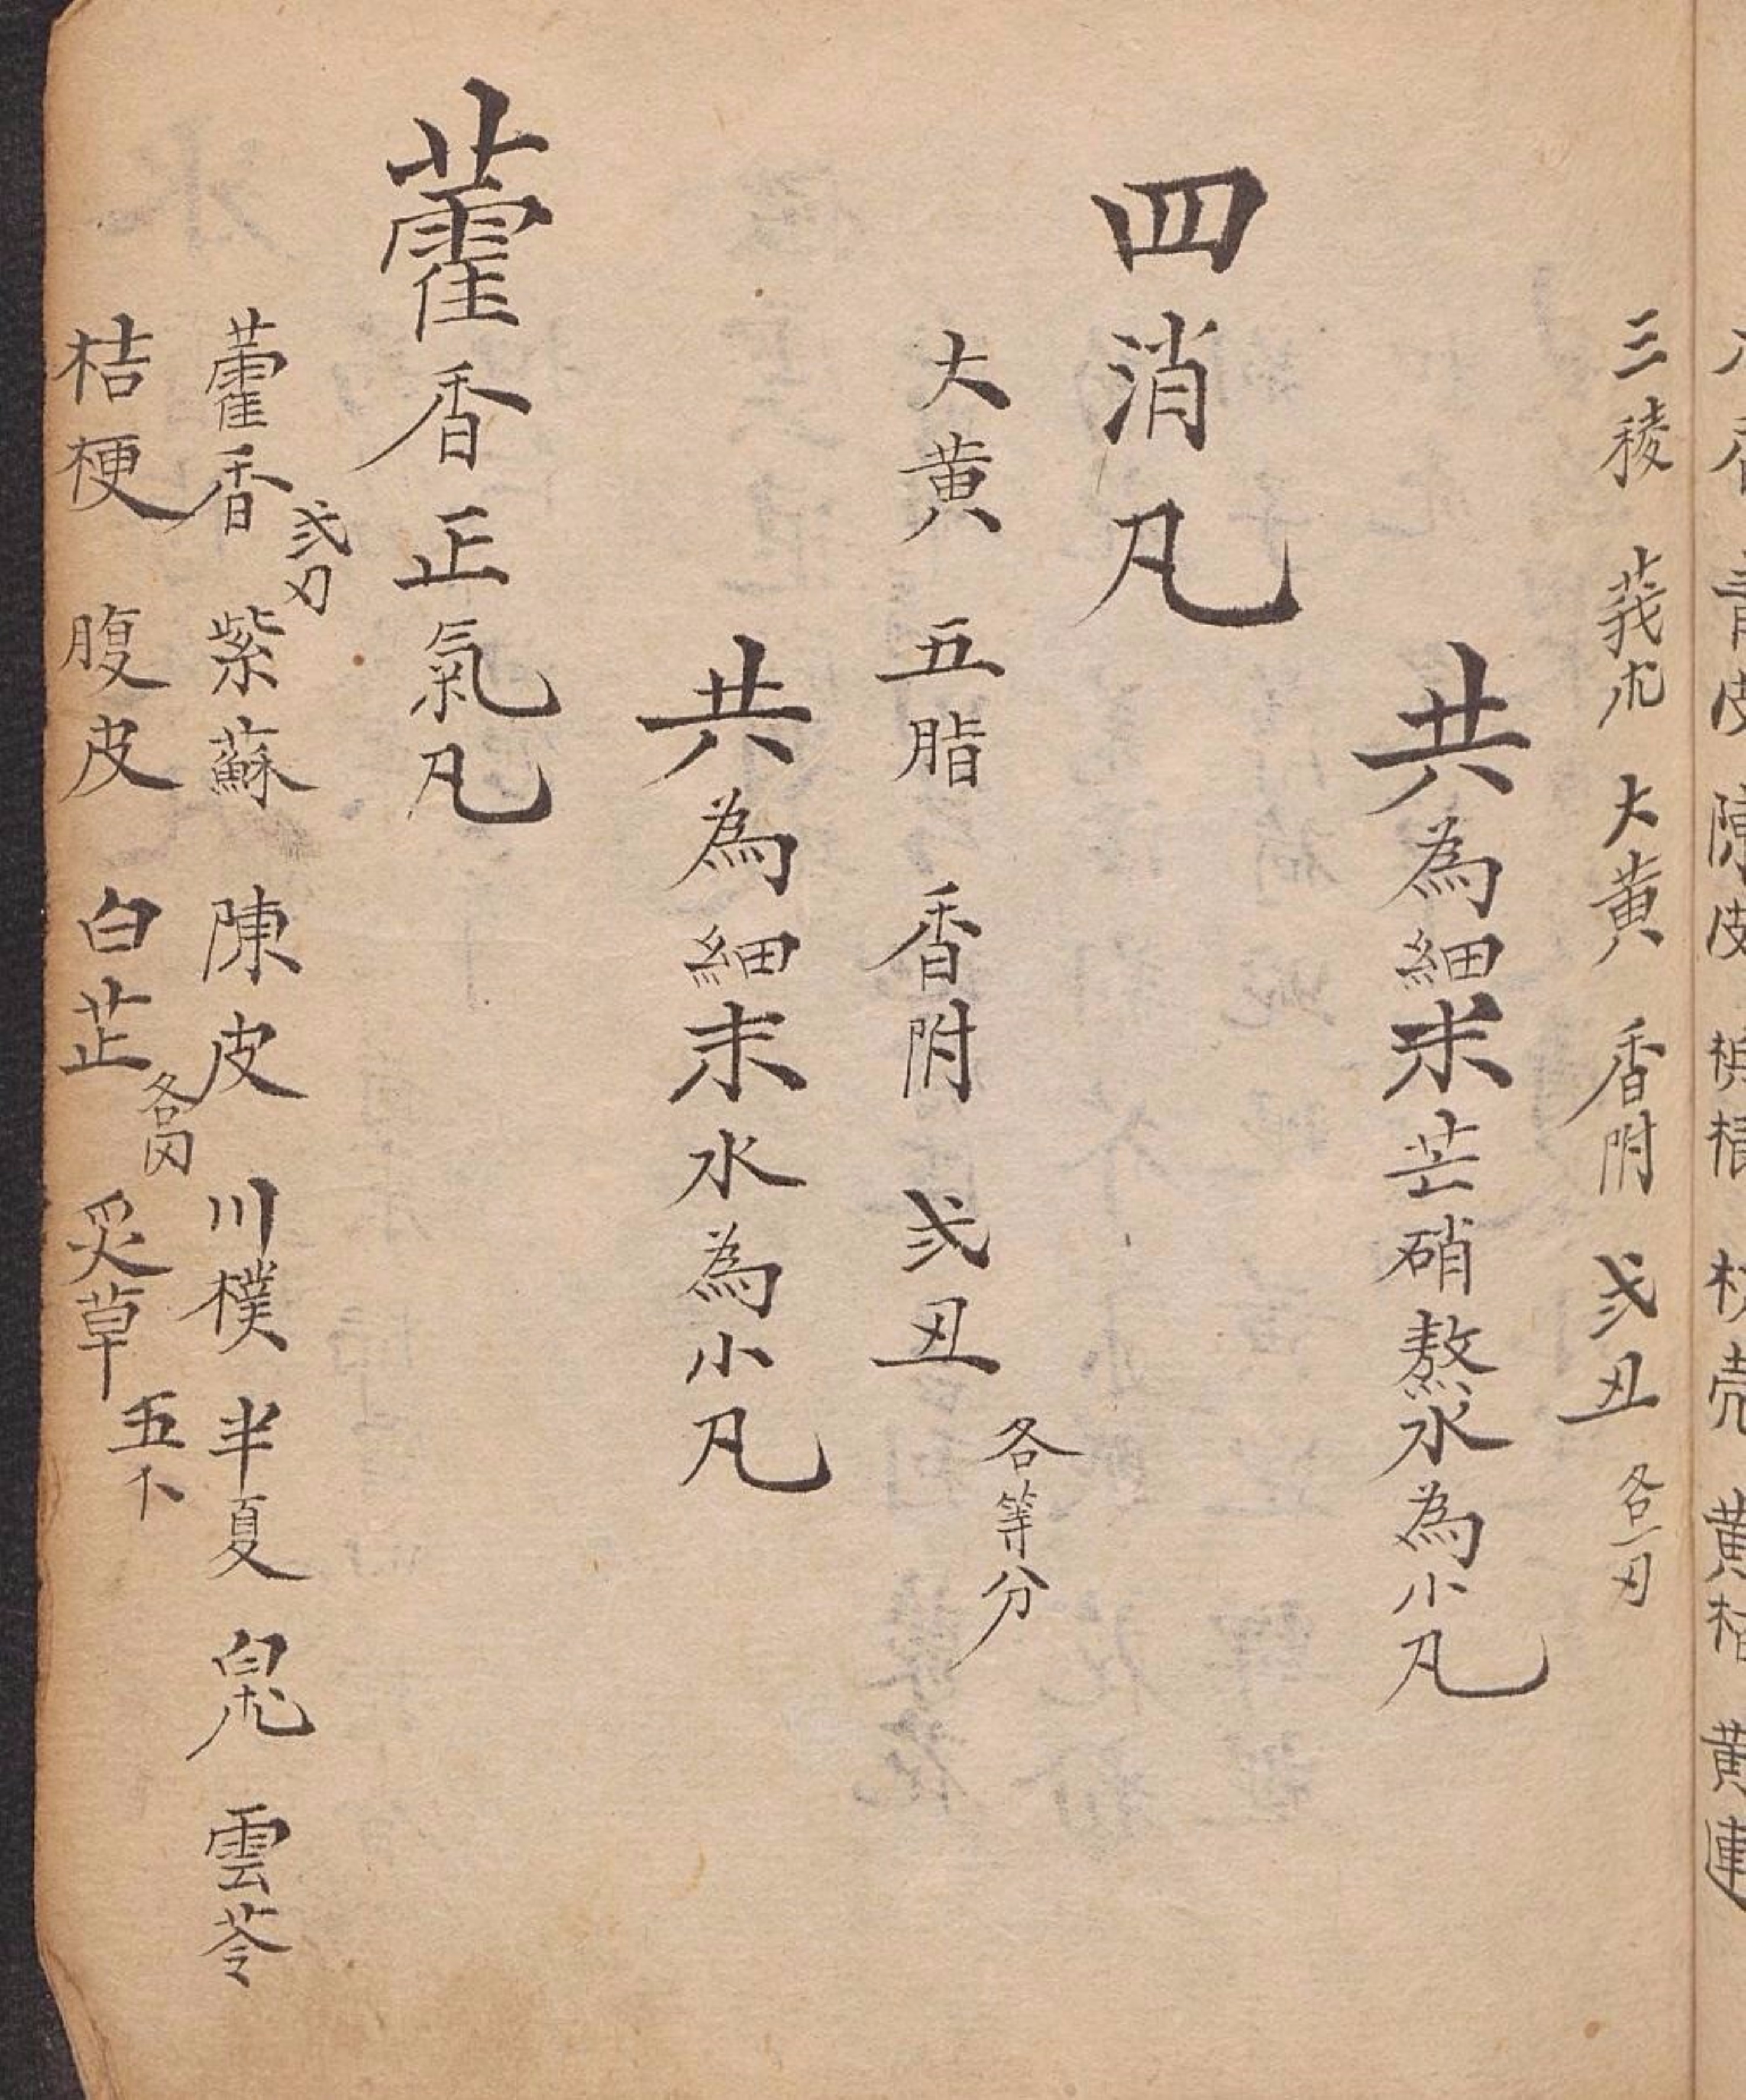 木香 青皮 陳皮 梹榔 枳壳 黄柏 黄連
三稜 莪朮 大黄 香附 弍丑 各一刄
共為細末芒硝熬水為小凡
四消凡
大黄 五脂 香附 弍丑 各等分
共為細末水為小凡
藿香正氣凡
藿香 弍刄 紫蘇 陳皮 川樸 半夏 白朮 雲苓
桔梗 腹皮 白芷 各刄 炙草 五卜